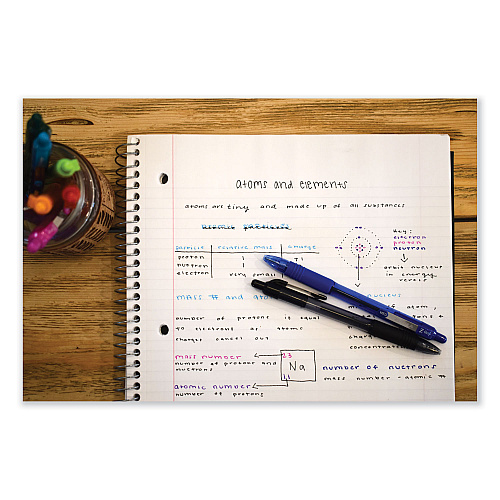 atoms and elements
atoms are tiny and made up of all substances
particle relative mass charge
proton 1 +1
nuetron 1
electron very small
Key:
electron
proton
neutron
orbit nucleus
in energry
levels
MASS # and
nucleus
number of protons is equal
to electrons
atoms
charges cancel out
of atom,
concentrat
mass number
number of protons and
nuetrons
23
Na
11
number of nuetrons
mass number - atomic #
atomic number
number of protons